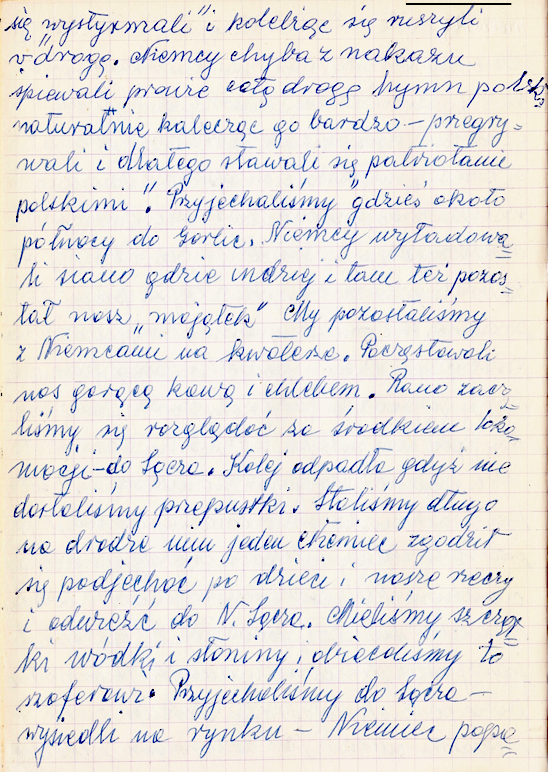 się "wystyrmali" i kolebiąc się ruszyli
w drogę. Niemcy chyba z nakazu
śpiewali prawie całą drogę hymn polski
naturalnie kalecząc go bardzo – przegry=
wali i dlatego stawali się patriotami
polskimi". Przyjechaliśmy gdzieś około
północy do Gorlic. Niemcy wyładowa=
li siano gdzie indziej i tam też pozos=
tał nasz „majątek" My pozostaliśmy
z Niemcami na kwaterze. Poczęstowali
nas gorącą kawą i chlebem. Rano zaczę=
liśmy się rozglądać za środkiem loko=
mocji – do Sącza. Kolej odpadła gdyż nie
dostaliśmy przepustki. Staliśmy długo
na drodze nim jeden Niemiec zgodził
się podjechać po dzieci i nasze rzeczy
i odwieźć do N. Sącza. Mieliśmy szcząt=
ki wódki i słoniny, obiecaliśmy to
szoferowi. Przyjechaliśmy do Sącza –
wysiedli na rynku – Niemiec popa=